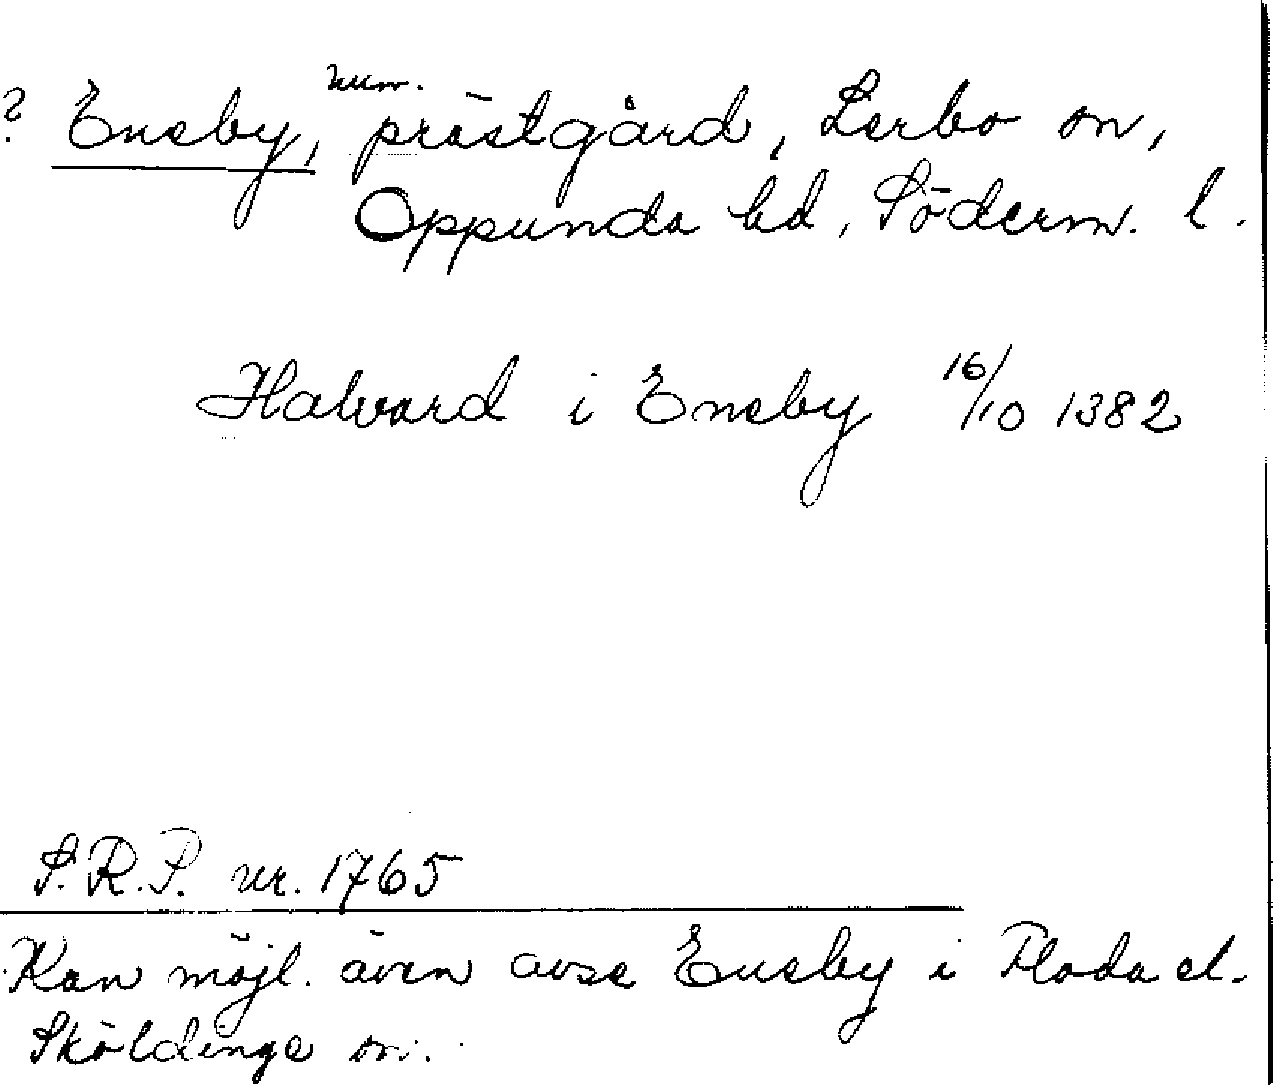 ? Eneby, num. prästgård, Lerbo sn,
Oppunda hd, Söderm. l.
Halvard i Eneby 16/10 1382
S.R.P. nr. 1765
Kan möjl. även avse Eneby i Floda el.
Sköldinge sn.